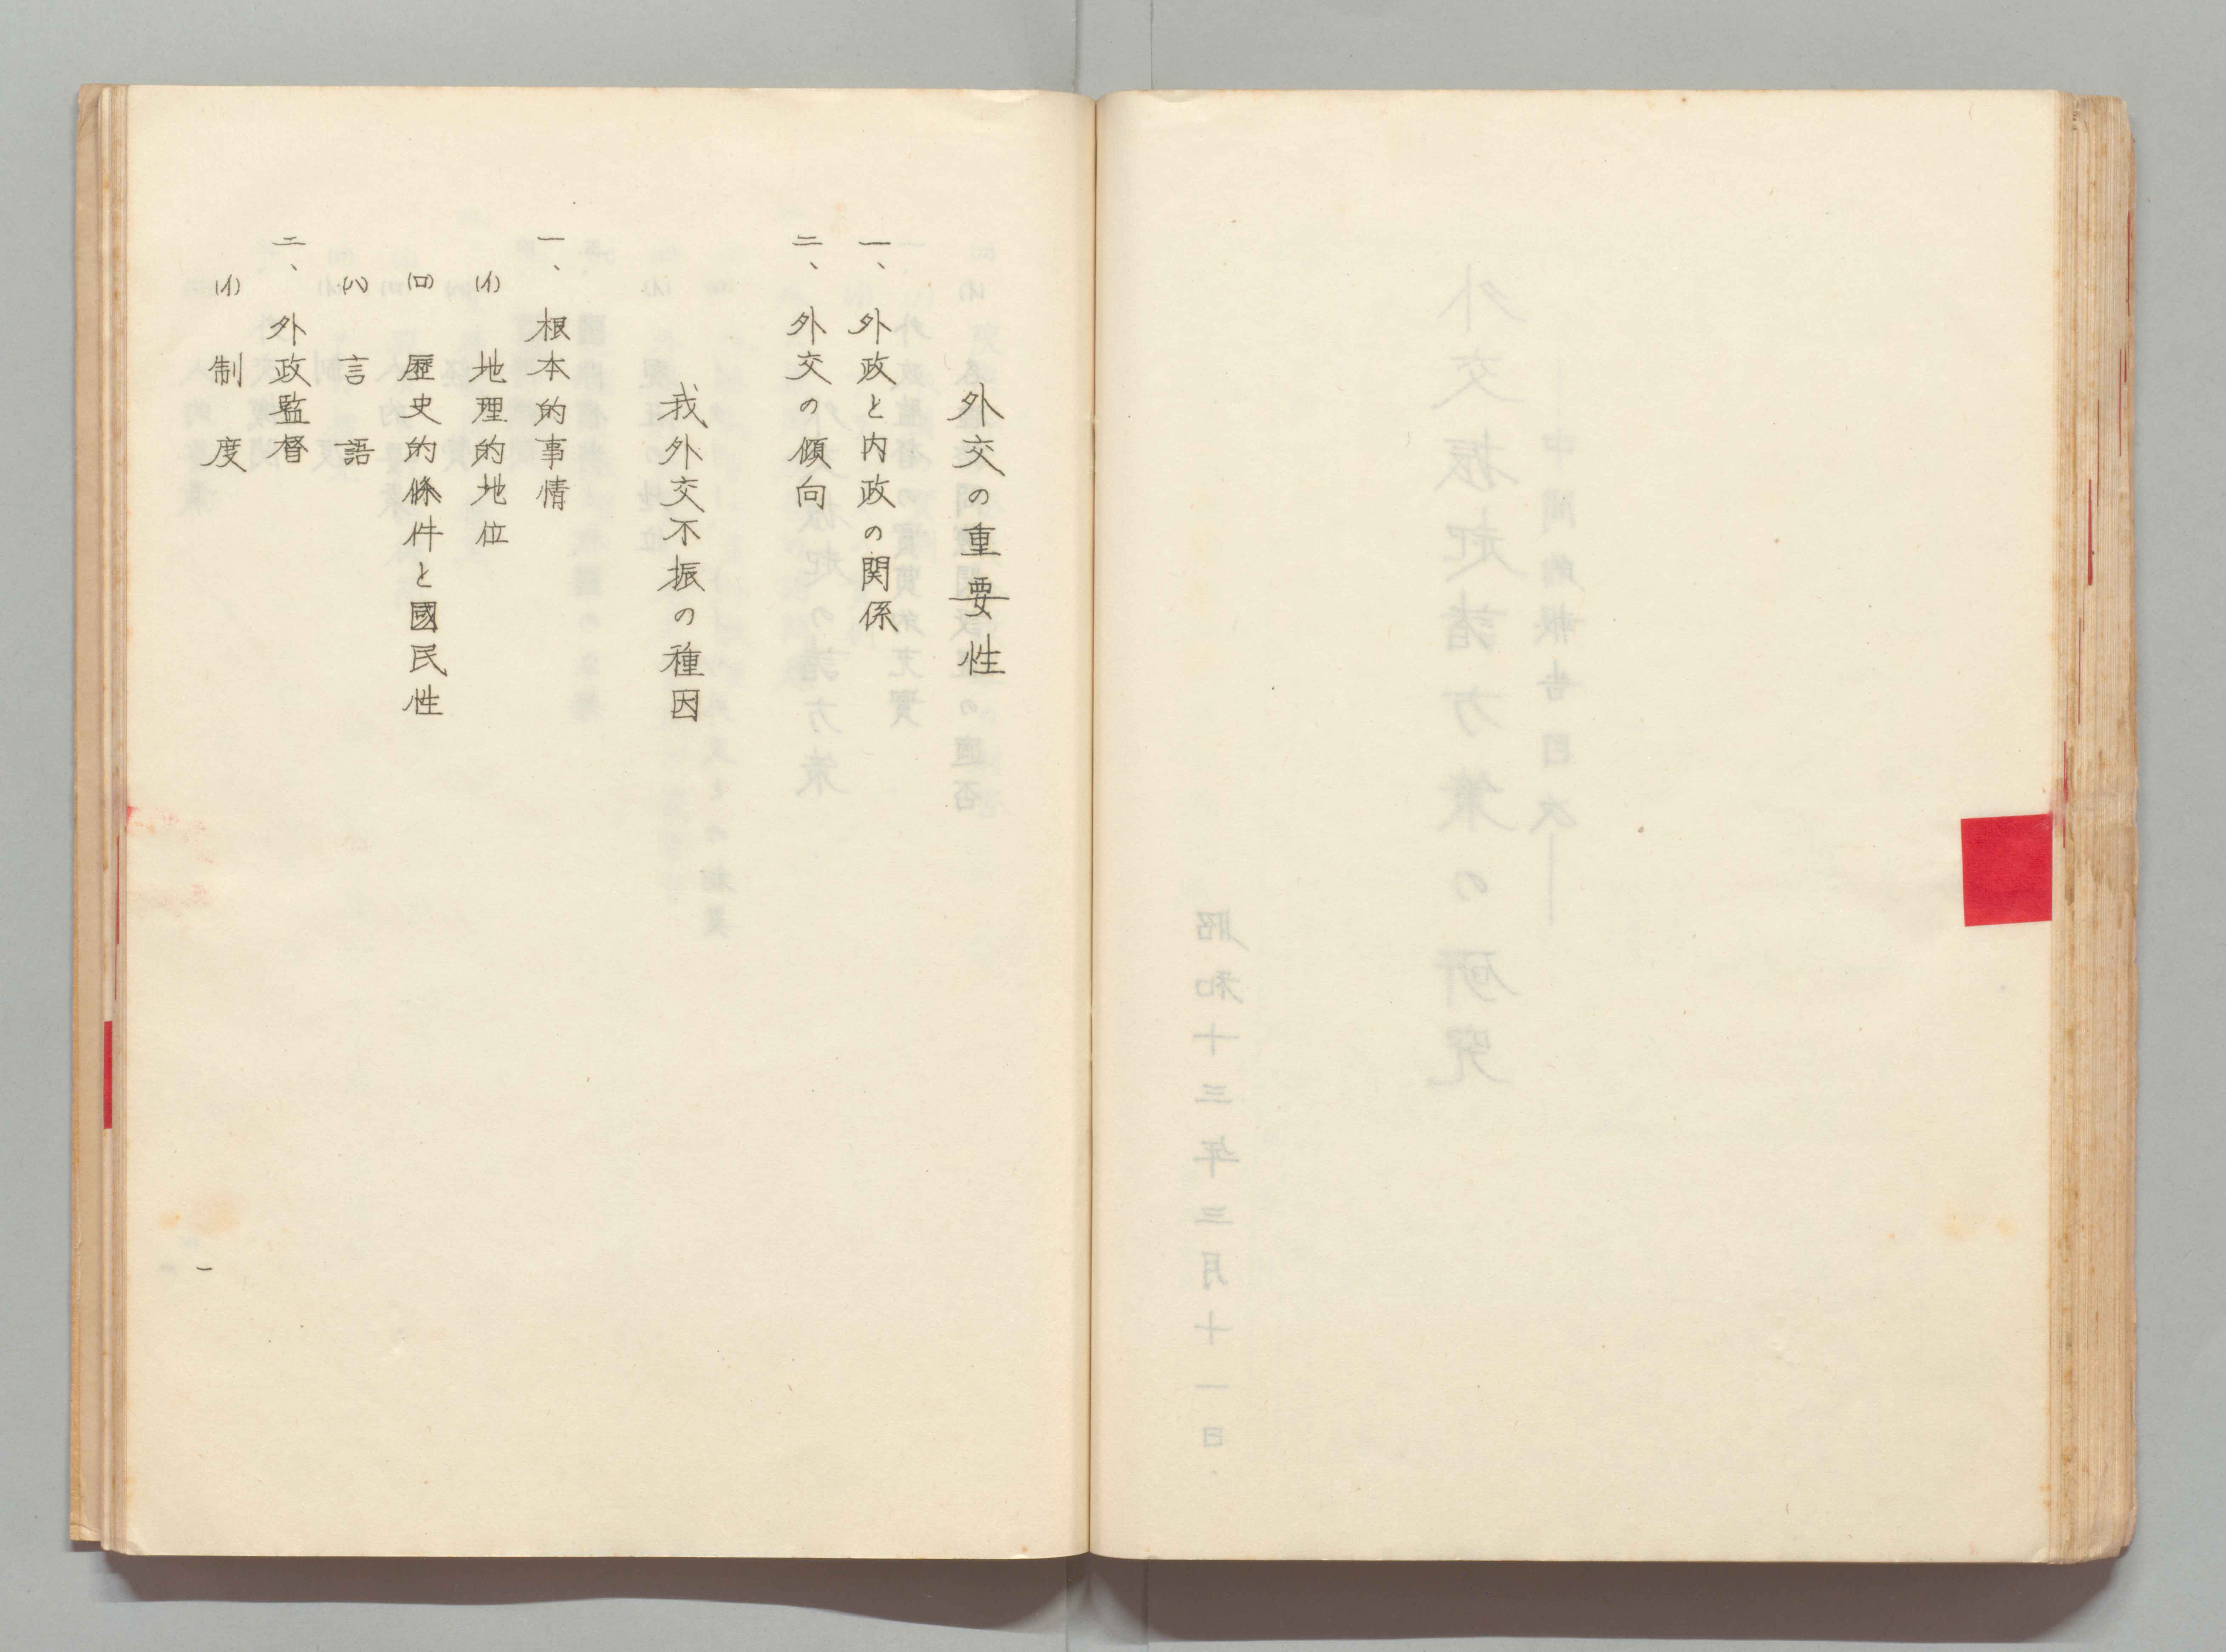 外交の重要性
一、外政と内政の関係
二、外交の傾向
我外交不振の種因
一、根本的事情
(イ) 地理的地位
(ロ) 歴史的條件と國民性
(ハ) 言語
二、外政監督
(イ) 制度
一